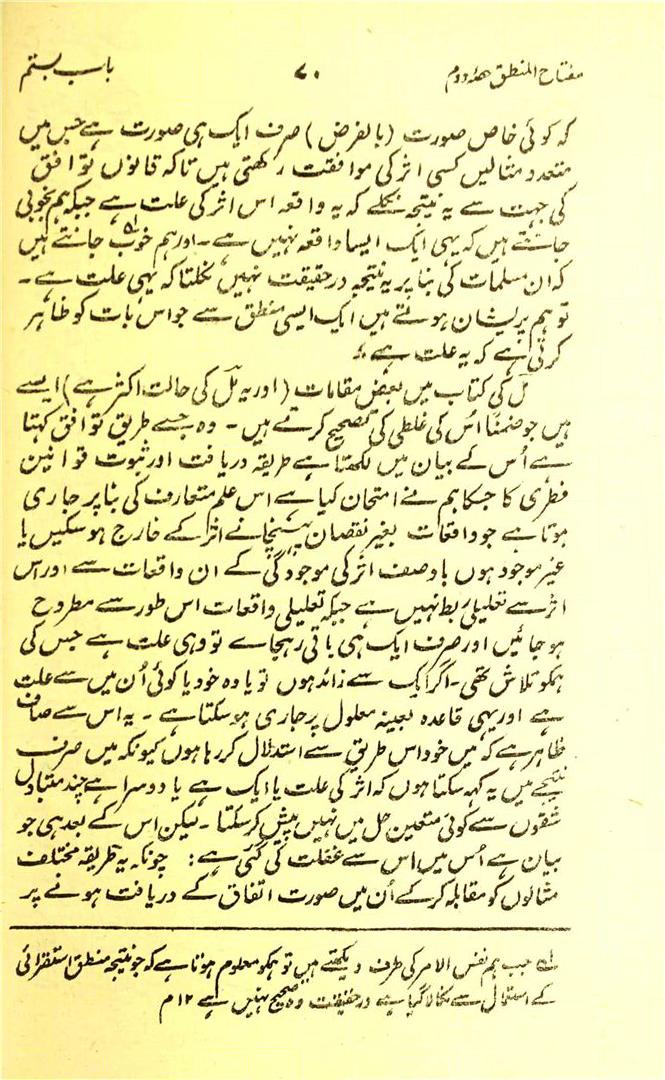 باب بستم ۷۰ مفتاح المنطق حصہ دوم
کہ کوئی خاص صورت (بالفرض) صرف ایک ہی صورت ہے جس میں
متعدد مثالیں کسی اثر کی موافقت رکھتی ہیں تاکہ قانون توافق
کی جہت سے یہ نتیجہ نکلے کہ یہ واقعہ اس اثر کی علت ہے جبکہ ہم بخوبی
جانتے ہیں کہ یہی ایک ایسا واقعہ نہیں ہے۔ اور ہم خوب جانتے ہیں
کہ ان مسلمات کی بنا پر یہ نتیجہ درحقیقت نہیں نکلتا کہ یہی علت ہے۔
تو ہم پریشان ہوتے ہیں ایک ایسی منطق سے جو اس بات کو ظاہر
کرتی ہے کہ یہ علت ہے
مل کی کتاب میں بعض مقامات (اور یہ مل کی حالت اکثر ہے) ایسے
ہیں جو ضمناً اس کی غلطی کی تصحیح کرتے ہیں۔ وہ جسے طریق توافق کہتا
ہے اُس کے بیان میں لکھتا ہے طریقہ دریافت اور ثبوت قوانین
فطری کا جسکا ہم نے امتحان کیا ہے اس علم متعارف کی بنا پر جاری
ہوتا ہے جو واقعات بغیر نقصان پہنچانے اثر کے خارج ہوسکیں یا
غیر موجود ہوں باوصف اثر کی موجودگی کے ان واقعات سے اور اس
اثر سے تعلیلی ربط نہیں ہے جبکہ تعلیلی واقعات اس طور سے مطروح
ہوجائیں اور صرف ایک ہی باقی رہجاے تو وہی علت ہے جس کی
ہمکو تلاش تھی۔ اگر ایک سے زائد ہوں تو یا وہ خود یا کوئی اُن میں سے علت
ہے اور یہی قاعدہ بعینہ معلول پر جاری ہوسکتا ہے۔ یہ اس سے صاف
ظاہر ہے کہ میں خود اس طریق سے استدلال کررہا ہوں کیونکہ میں صرف
نتیجے میں یہ کہہ سکتا ہوں کہ اثر کی علت یا ایک ہے یا دوسرا ہے چند متبادل
شقوں سے کوئی متعین حل میں نہیں پیش کرسکتا۔ لیکن اس کے بعد ہی جو
بیان ہے اُس میں اس سے غفلت کی گئی ہے: چونکہ یہ طریقہ مختلف
مثالوں کو مقابلہ کرکے اُن میں صورت اتفاق کے دریافت ہونے پر
لہ جب ہم نفس الامر کی طرف دیکھتے ہیں تو ہمکو معلوم ہوتا ہے کہ جو نتیجہ منطق استقرائی
کے استعمال سے نکالا گیا ہے درحقیقت وہ صحیح نہیں ہے ۱۲ م